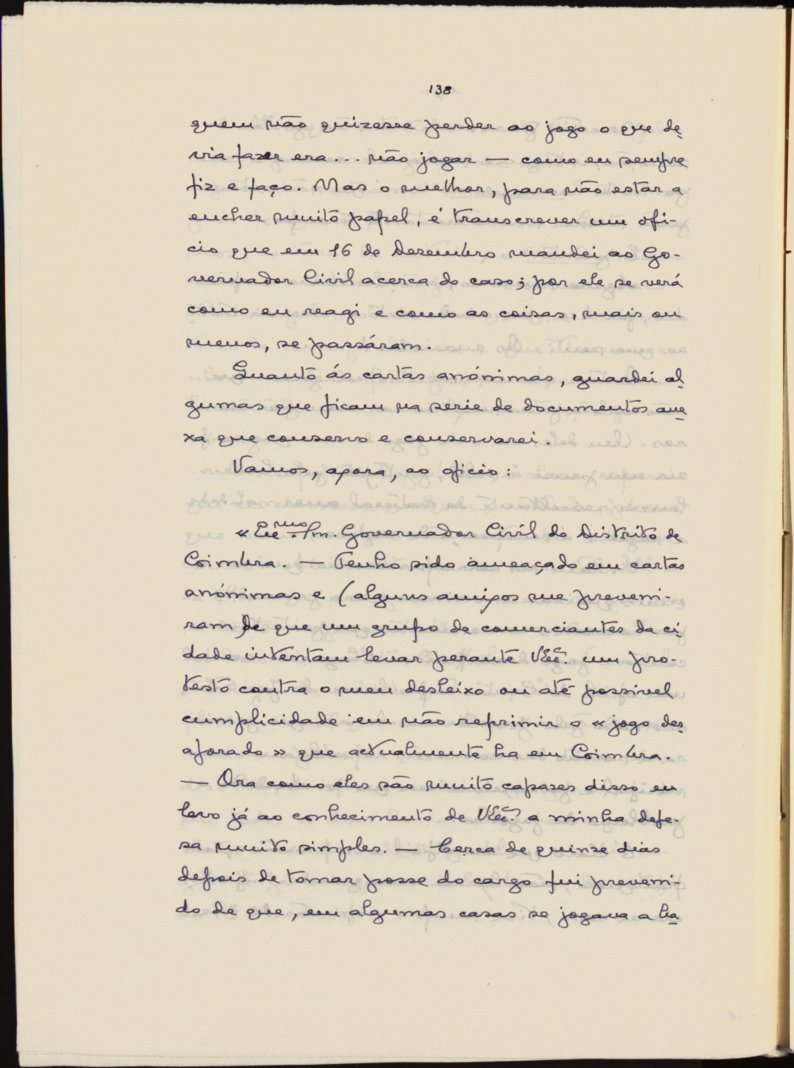 138
quem não quizesse perder ao jogo o que de-
via fazer era... não jogar — como eu sempre
fiz e faço. Mas o melhor, para não estar a
encher muito papel, é transcrever um ofi-
cio que em 16 de Dezembro mandei ao Go-
vernador Civil acerca do caso; por ele se verá
como eu reagi e como as coisas, mais ou
menos, se passáram.
Quanto ás cartas anónimas, guardei al-
gumas que ficam na serie de documentos ane-
xa que conservo e conservarei.
Vamos, agora, ao oficio:
« Exᵐᵒ Sr. Governador Civil do Distrito de
Coimbra. — Tenho sido ameaçado em cartas
anónimas e (alguns amigos me preveni-
ram de que um grupo de comerciantes da ci-
dade intentam levar perante V. Exª. um pro-
testo contra o meu desleixo ou até possivel
cumplicidade em não reprimir o « jogo des-
aforado » que actualmente ha em Coimbra.
— Ora como eles são muito capazes disso eu
levo já ao conhecimento de V. Exª. a minha defe-
sa muito simples. — Cerca de quinze dias
depois de tomar posse do cargo fui preveni-
do de que, em algumas casas se jogava a ba-